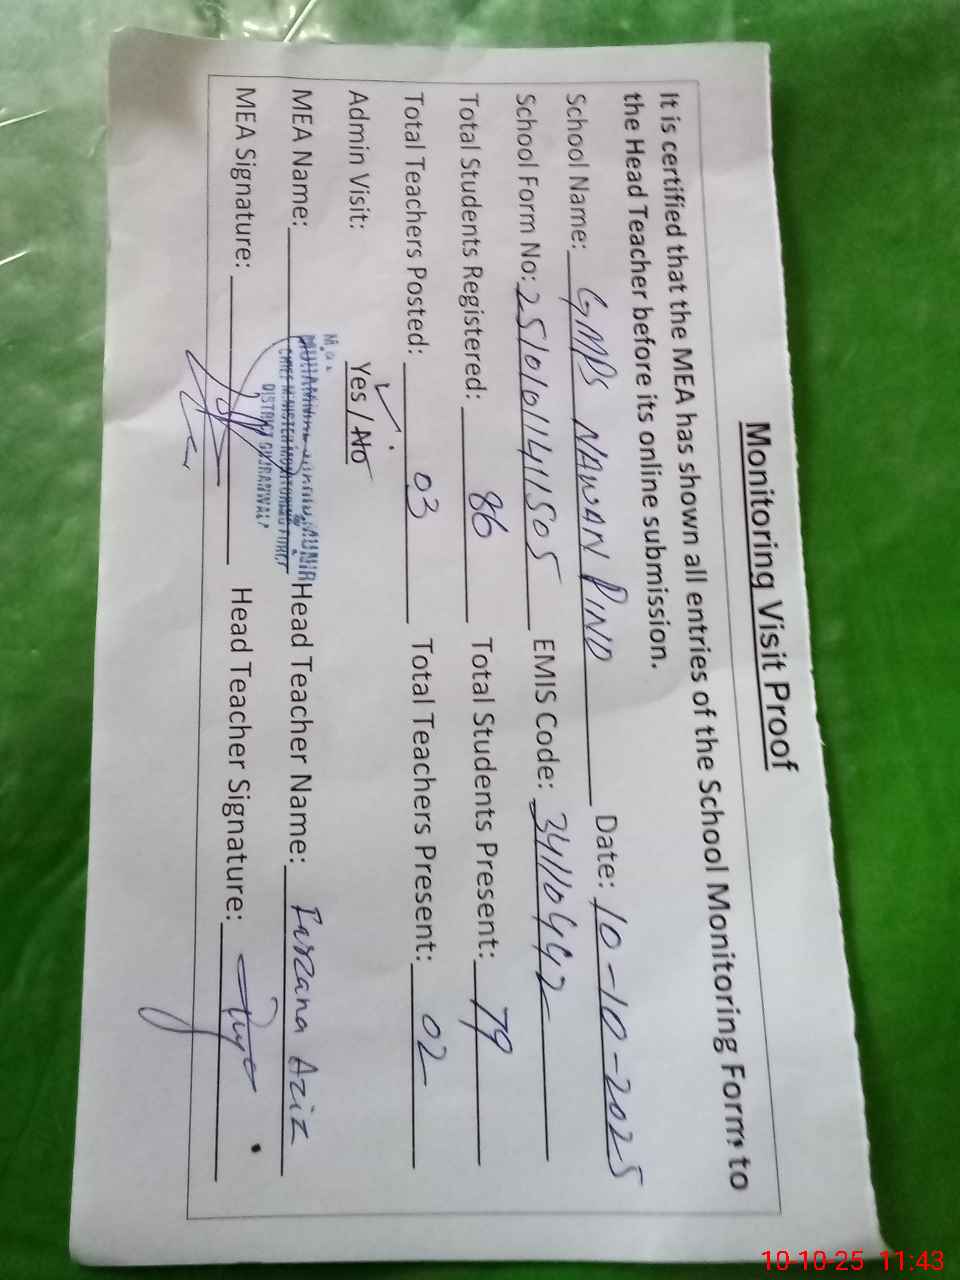 Monitoring Visit Proof
It is certified that the MEA has shown all entries of the School Monitoring Form to
the Head Teacher before its online submission.
School Name: GMPS NAWAN PIND Date: 10-10-2025
School Form No: 2510101141505 EMIS Code: 34110442
Total Students Registered: 86 Total Students Present: 79
Total Teachers Posted: 03 Total Teachers Present: 02
Admin Visit: Yes / No
MEA Name: MUNIR Head Teacher Name: Farzana Aziz
CHIEF MINISTER MONITORING FORCE
DISTRICT GUJRANWALA
MEA Signature: Head Teacher Signature:
10-10-25 11:43